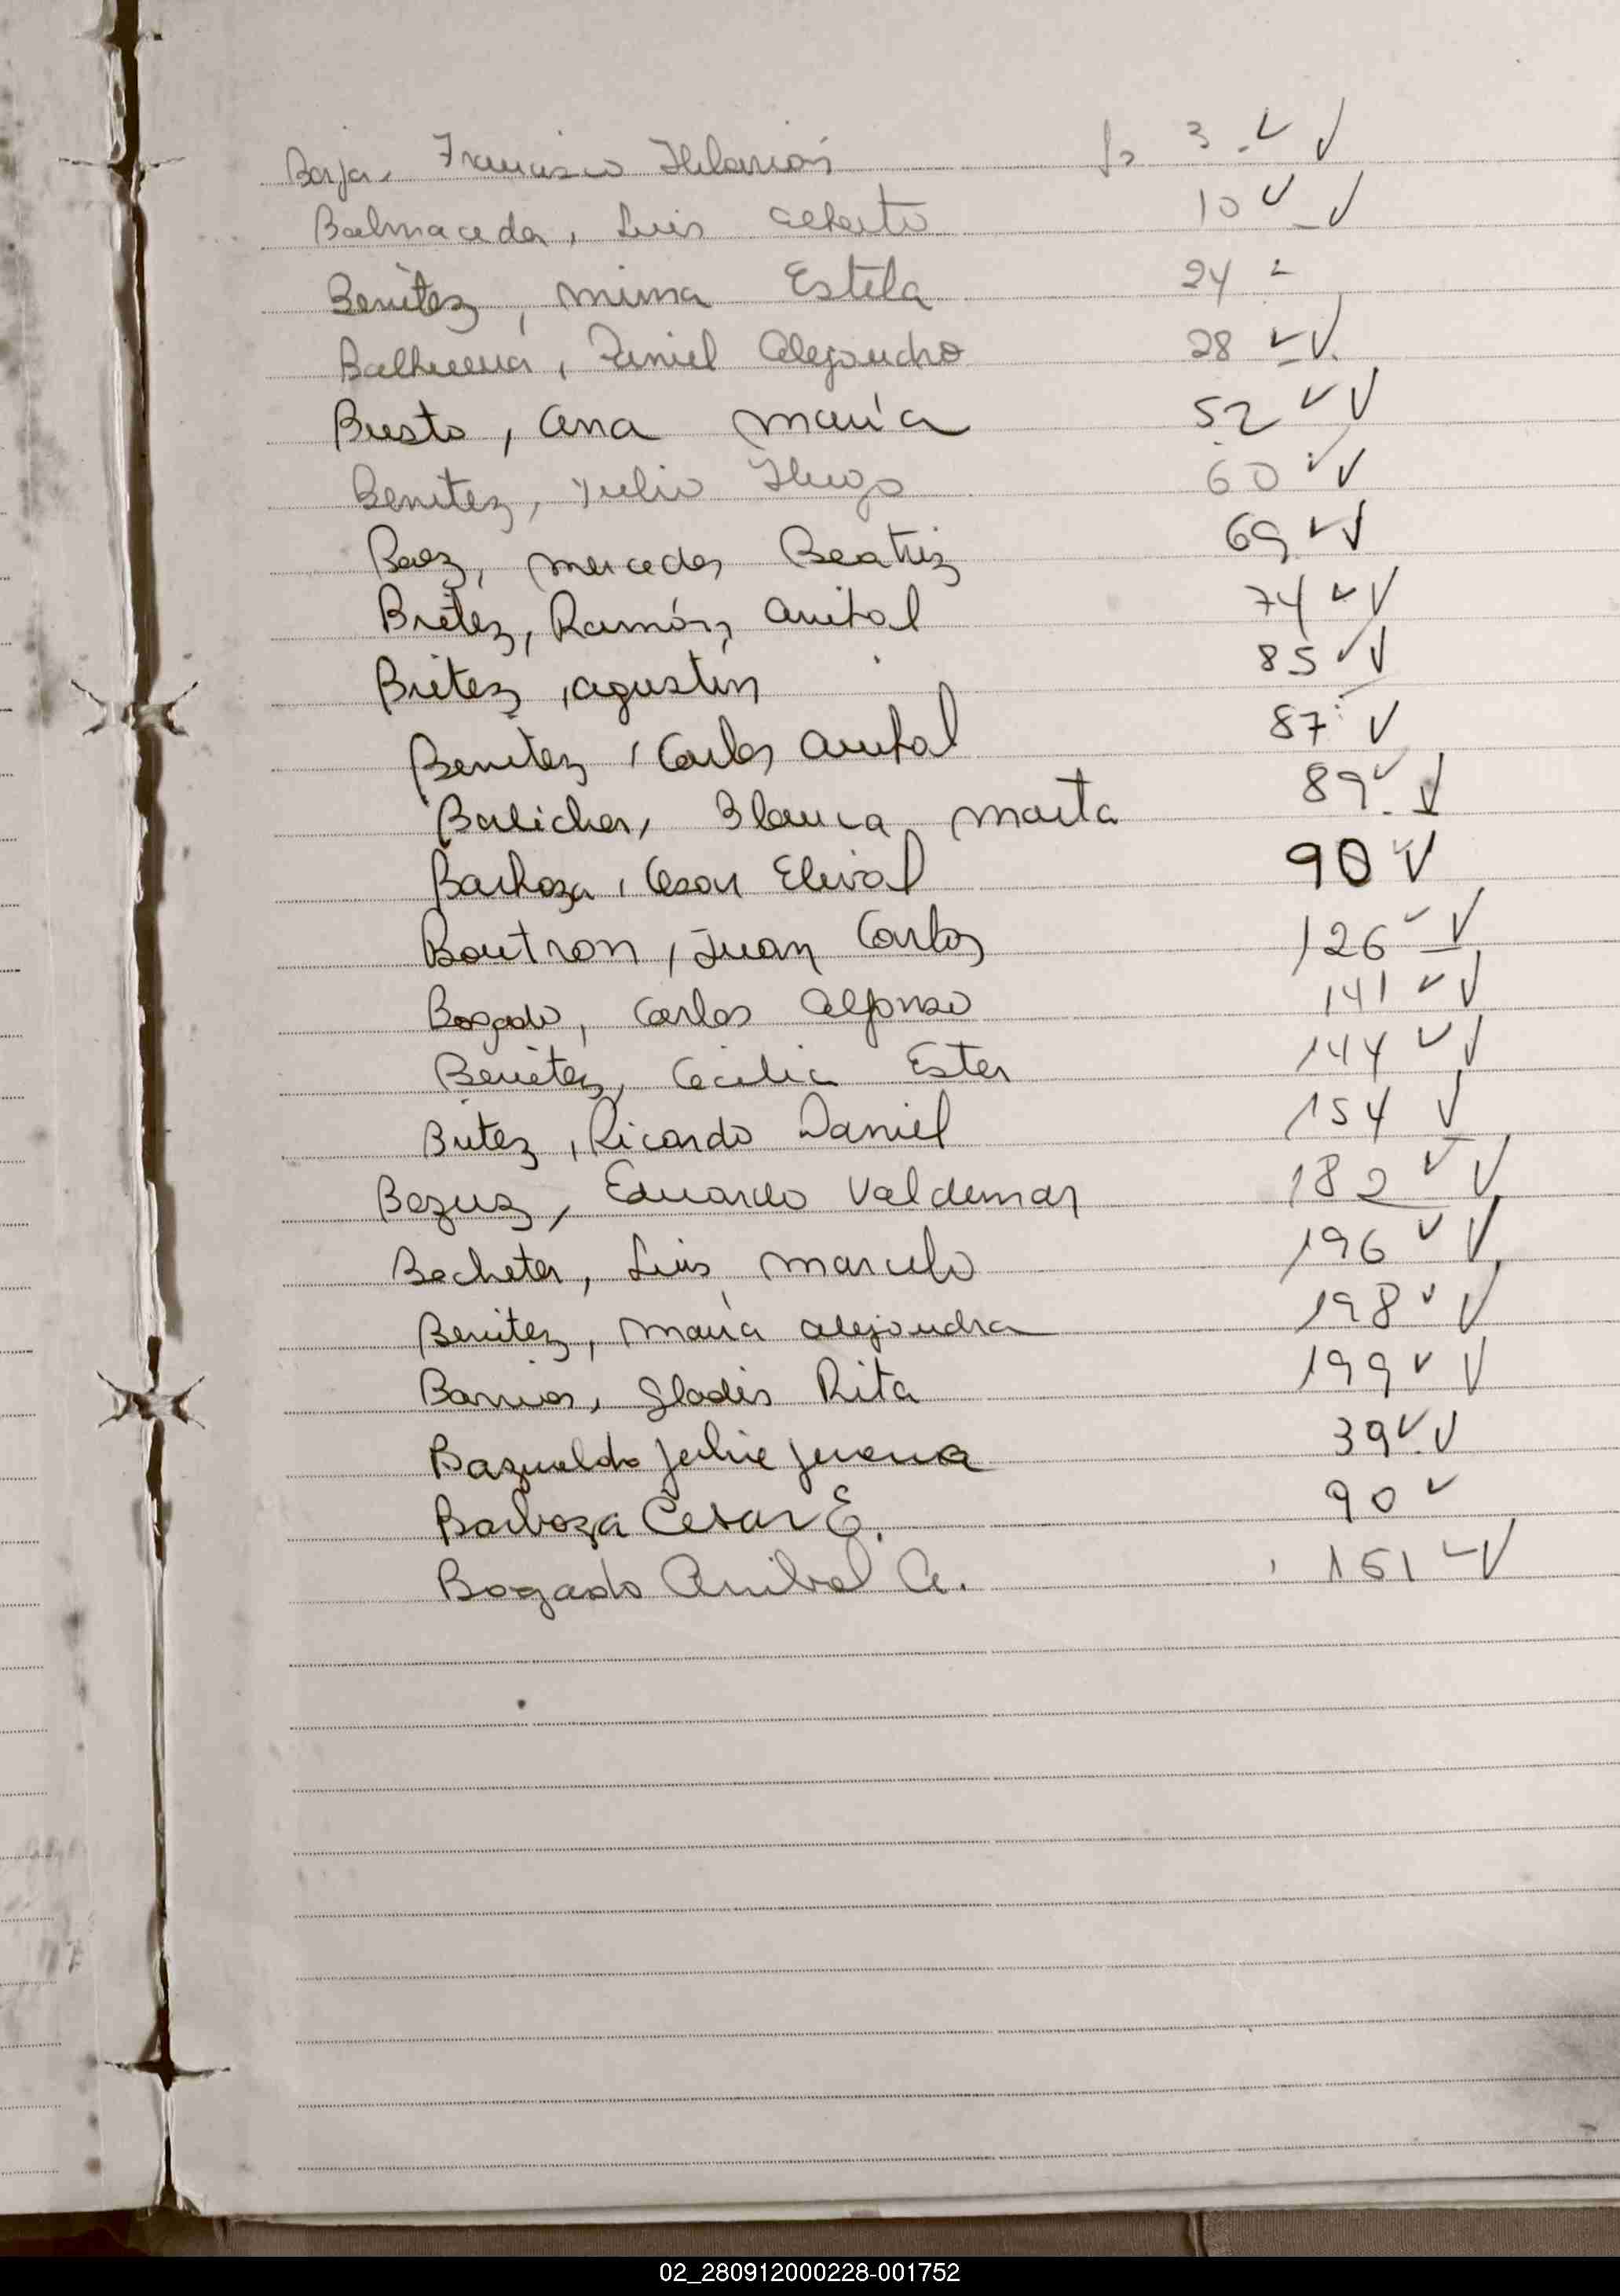 Borja, Francisco Hilarión fo 3 ✓ ✓
Balmaceda, Luis Alberto 10 ✓ ✓
Benítez, Mirna Estela 24 ✓
Balbuena, Daniel Alejandro 28 ✓ ✓
Busto, Ana María 52 ✓ ✓
Benitez, Julio Hugo 60 ✓ ✓
Baez, Mercedes Beatriz 69 ✓ ✓
Britez, Ramón, Anibal 74 ✓ ✓
Britez, Agustín 85 ✓ ✓
Benitez, Carlos Anibal 87 ✓
Blanca Marta 89 ✓ ✓
Barboza, Cesar 90 ✓
Boutron, Juan Carlos 126 ✓ ✓
Bogado, Carlos Alfonso 141 ✓ ✓
Benítez, Cecilia Ester 144 ✓ ✓
Britez, Ricardo Daniel 154 ✓
Bezuz, Eduardo Valdemar 182 ✓ ✓
Luis Marcelo 196 ✓ ✓
Benitez, María Alejandra 198 ✓ ✓
Barrios, Gladis Rita 199 ✓ ✓
Bazualdo 39 ✓ ✓
Barboza Cesar E. 90 ✓
Bogado Anibal A. 151 ✓ ✓
02_280912000228-001752